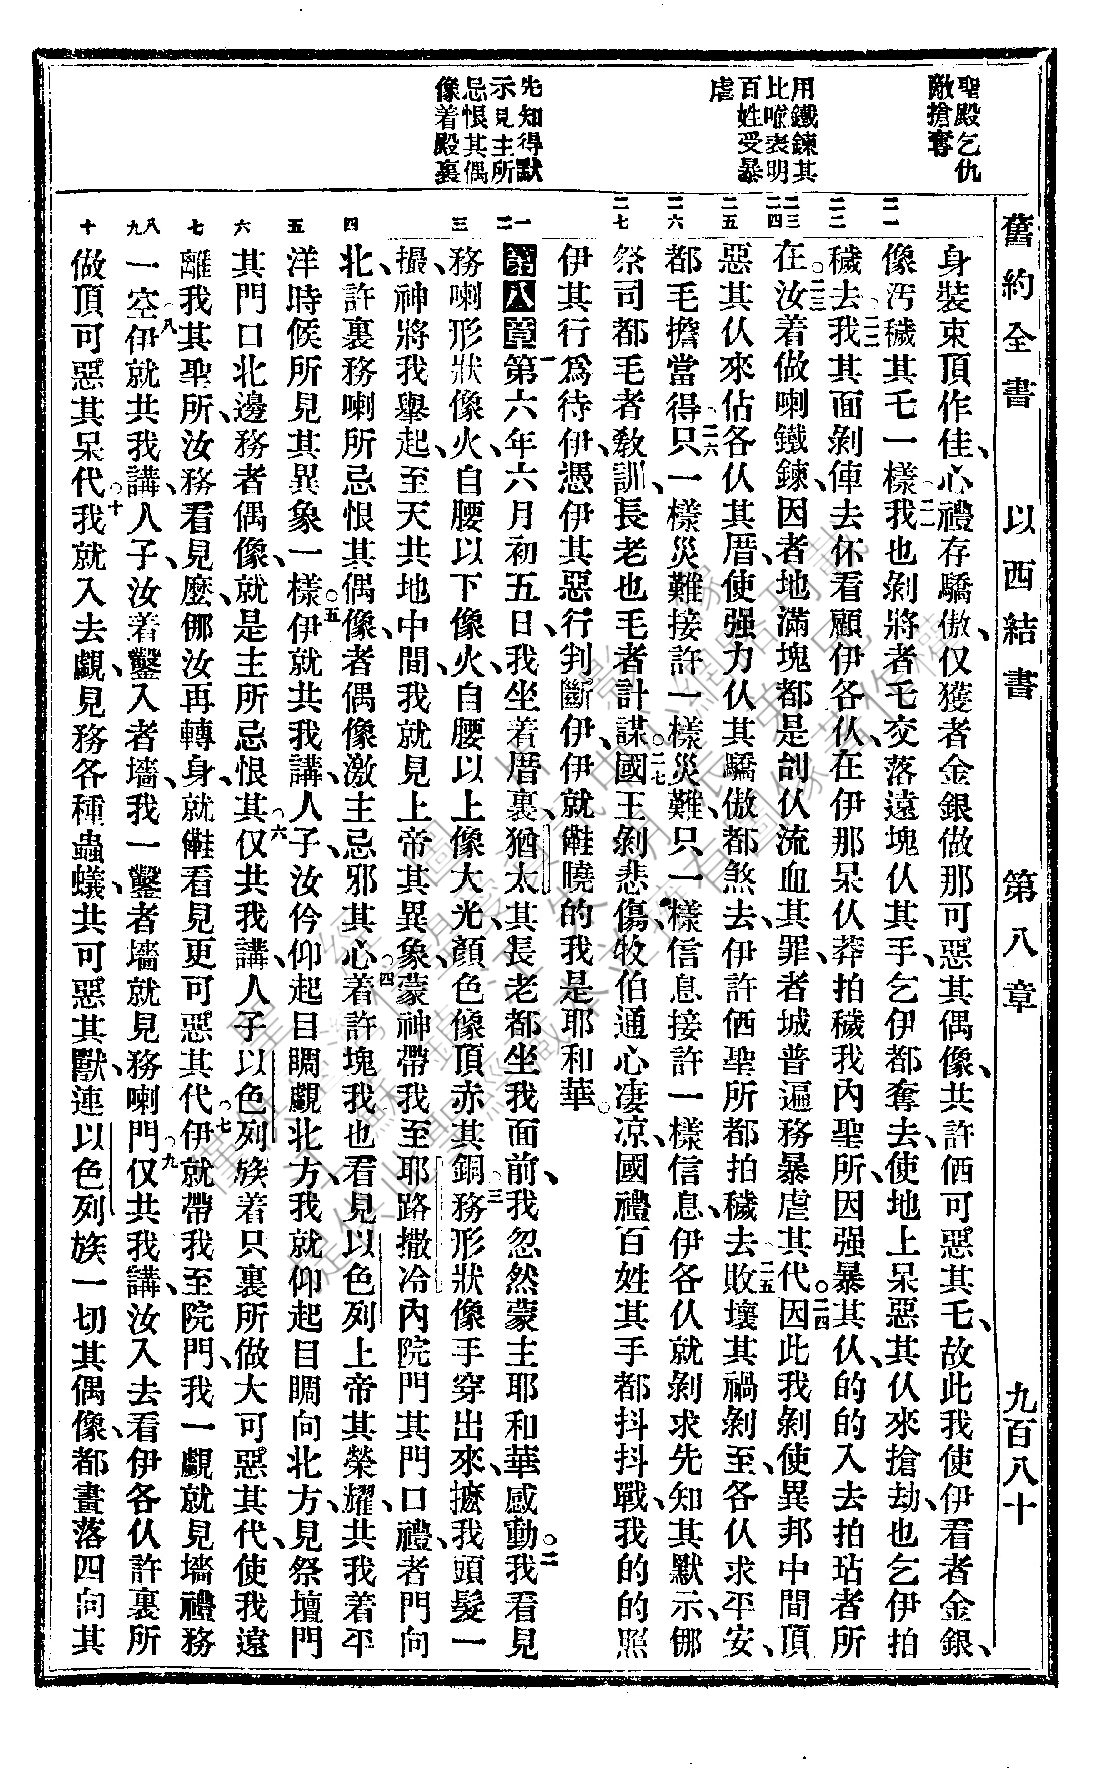 舊約全書　以西結書　第八章　九百八十
聖殿乞仇
敵搶奪
用鐵鍊其
比喻表明
百姓受暴
虐
先知得默
示見主所
忌恨其偶
像着殿裏
身裝束頂作佳、心禮存驕傲、仅獲者金銀做那可惡其偶像、共許倆可惡其乇、故此我使伊看者金銀、
二一 像汚穢其乇一樣。二一我也剝將者乇交落遠塊仅其手、乞伊都奪去、使地上呆惡其仅來搶劫、也乞伊拍
二二 穢去。二二我其面剝俥去伓看顧伊各仅、在伊那呆仅莽拍穢我內聖所、因强暴其仅、的的入去拍玷者所
二三 二四 在。二三汝着做喇鐵鍊、因者地滿塊都是刣仅流血其罪、者城普遍務暴虐其代。二四因此我剝使異邦中間頂
二五 惡其仅來佔各仅其厝、使强力仅其驕傲都煞去、伊許倆聖所都拍穢去。二五敗壞其禍剝至、各仅求平安、
二六 都毛擔當得。二六只一樣災難接許一樣災難、只一樣信息接許一樣信息、伊各仅就剝求先知其默示、㑚
二七 祭司都毛者敎訓、長老也毛者計謀。二七國王剝悲傷、牧伯通心凄凉、國禮百姓其手都抖抖戰、我的的照
伊其行爲待伊、憑伊其惡行判斷伊、伊就㑚曉的我是耶和華。
一 二 第八章 一第六年六月初五日、我坐着厝裏、猶太其長老都坐我面前、我忽然蒙主耶和華感動。二我看見
三 務喇形狀像火、自腰以下像火、自腰以上像大光、顏色像頂赤其銅。三務形狀像手穿出來、攠我頭髮一
撮、神將我舉起、至天共地中間、我就見上帝其異象、蒙神帶我至耶路撒冷內院門其門口、禮者門向
四 北、許裏務喇所忌恨其偶像、者偶像激主忌邪其心。四着許塊我也看見以色列上帝其榮耀、共我着平
五 洋時候所見其異象一樣。五伊就共我講、人子、汝仱仰起目睭覷北方、我就仰起目睭向北方、見祭壇門
六 其門口北邊務者偶像、就是主所忌恨其。六仅共我講、人子、以色列族着只裏所做大可惡其代、使我遠
七 離我其聖所、汝務看見麼、㑚汝再轉身、就㑚看見更可惡其代。七伊就帶我至院門、我一覷就見墻禮務
八 九 一空。八伊就共我講、人子、汝着鑿入者墻、我一鑿者墻、就見務喇門。九仅共我講、汝入去看伊各仅許裏所
十 做頂可惡其呆代。十我就入去覷、見務各種蟲蟻、共可惡其獸、連以色列族一切其偶像、都畫落四向其